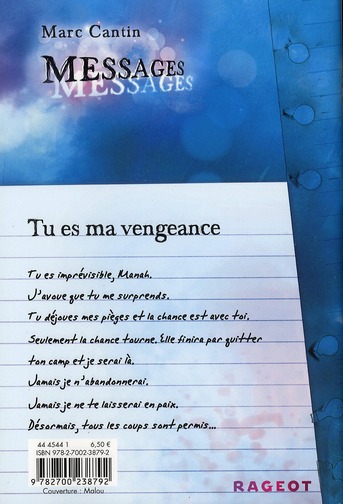 Marc Cantin
MESSAGES
MESSAGES
Tu es ma vengeance
Tu es imprévisible, Manah.
J'avoue que tu me surprends.
Tu déjoues mes pièges et la chance est avec toi.
Seulement la chance tourne. Elle finira par quitter
ton camp et je serai là.
Jamais je n'abandonnerai.
Jamais je ne te laisserai en paix.
Désormais, tous les coups sont permis...
44 4544 1 6,50 €
ISBN 978-2-7002-3879-2
9 782700 238792
Couverture : Malou
RAGEOT